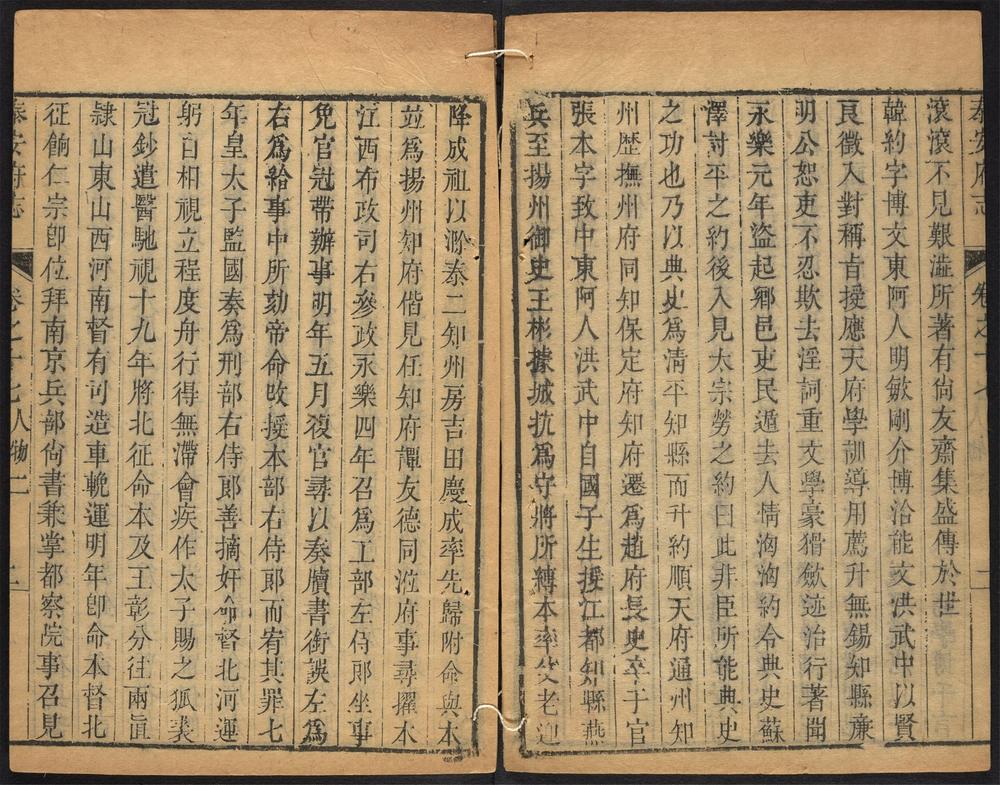 泰安府志 卷之十七人
滾滾不見艱澁所著有尙友齋集盛傳於世
韓約字博文東阿人明敏剛介博洽能文洪武中以賢
良徵入對稱旨授應天府學訓導用薦升無錫知縣亷
明公恕吏不忍欺去淫詞重文學豪猾歛迹治行著聞
永樂元年盜起鄉邑吏民遁去人情洶洶約令典史蘇
澤討平之約後入見太宗勞之約曰此非臣所能典史
之功也乃以典史爲淸平知縣而升約順天府通州知
州歷撫州府同知保定府知府遷爲趙府長史卒于官
張本字致中東阿人洪武中自國子生授江都知縣燕
兵至揚州御史王彬據城抗爲守將所縛本率父老迎
降成祖以滁泰二知州房吉田慶成率先歸附命與本
竝爲揚州知府偕見任知府譚友德同涖府事尋擢本
江西布政司右參政永樂四年召爲工部左侍郎坐事
免官冠帶辦事明年五月復官尋以奏牘書銜誤左爲
右爲給事中所劾帝命改授本部右侍郎而宥其罪七
年皇太子監國奏爲刑部右侍郎善摘奸命督北河運
躬自相視立程度舟行得無滯會疾作太子賜之狐裘
冠鈔遣醫馳視十九年將北征命本及王彰分往兩直
隷山東山西河南督有司造車輓運明年卽命本督北
征餉仁宗卽位拜南京兵部尙書兼掌都察院事召見
泰安府志 卷之十七人物二 二